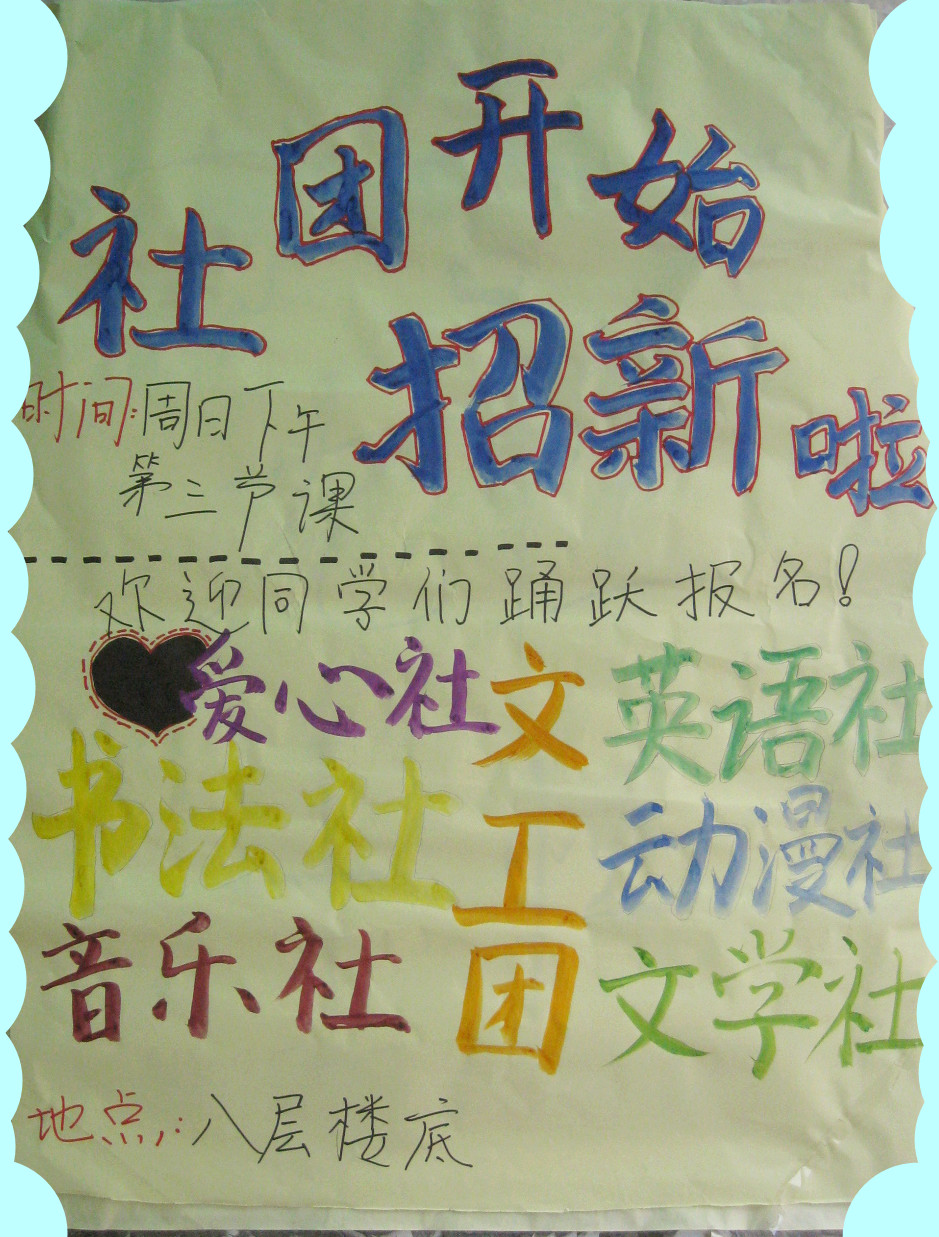 社团开始
招新啦
时间:周日下午
第三节课
欢迎同学们踊跃报名!
爱心社
书法社
音乐社
文工团
英语社
动漫社
文学社
地点:八层楼底